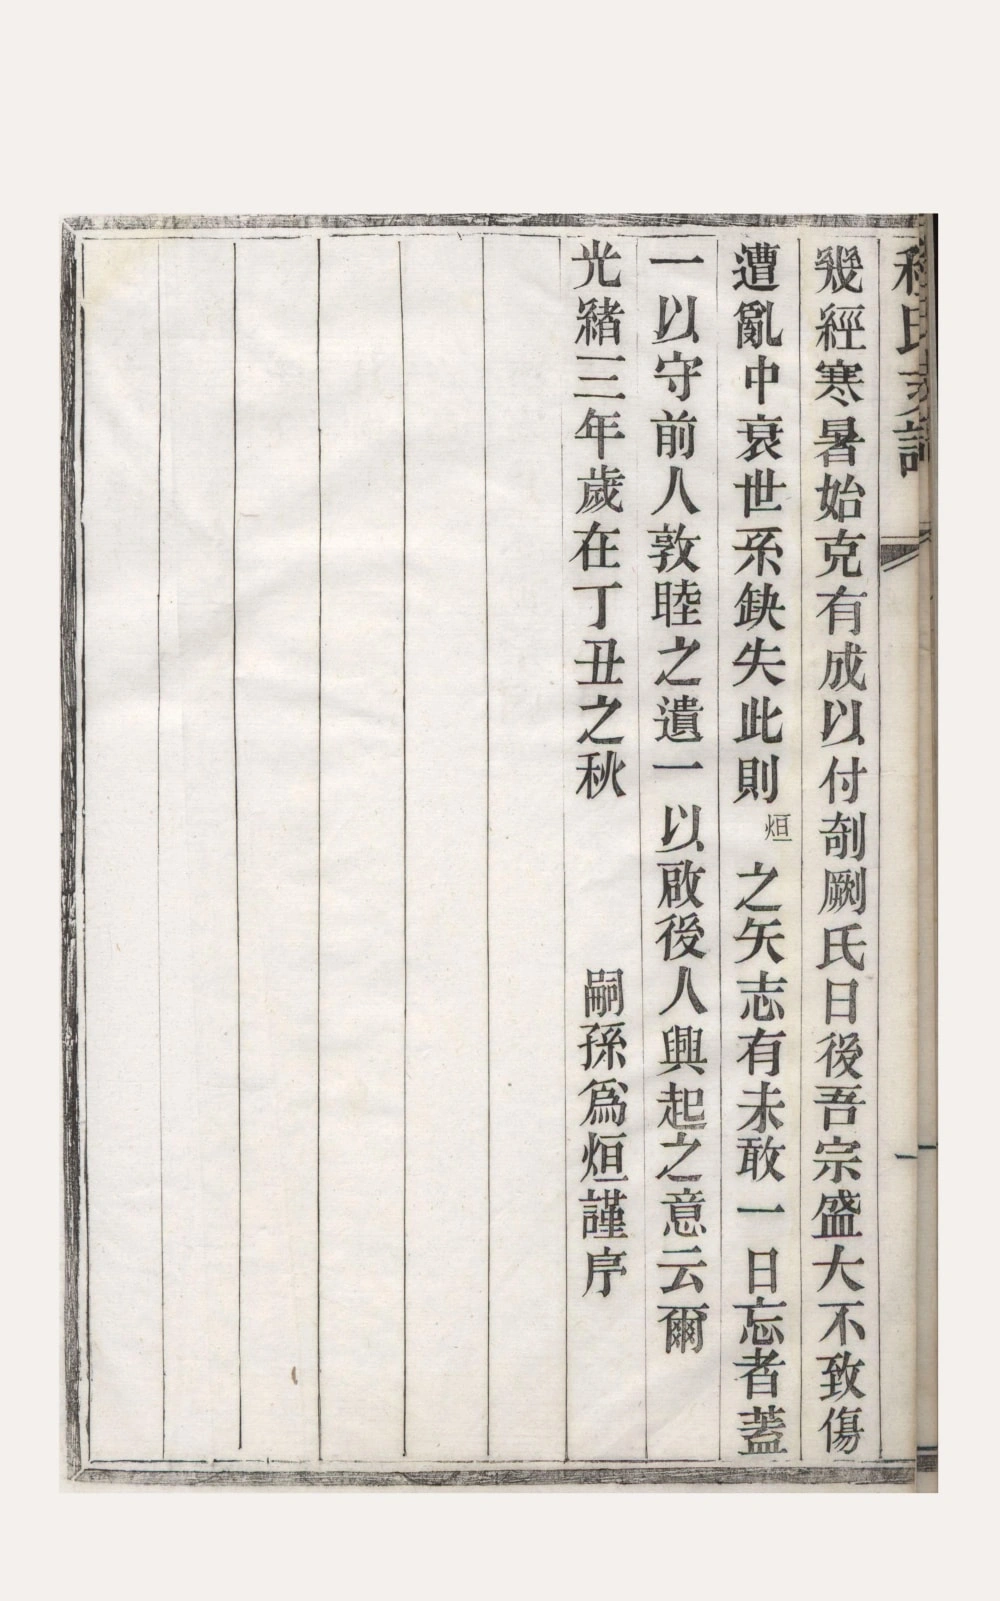 氏家譜
一
幾經寒暑始克有成以付剞劂氏日後吾宗盛大不致傷
遭亂中衰世系缺失此則烜之矢志有未敢一日忘者蓋
一以守前人敦睦之遺一以啟後人興起之意云爾
光緒三年歲在丁丑之秋
嗣孫為烜謹序